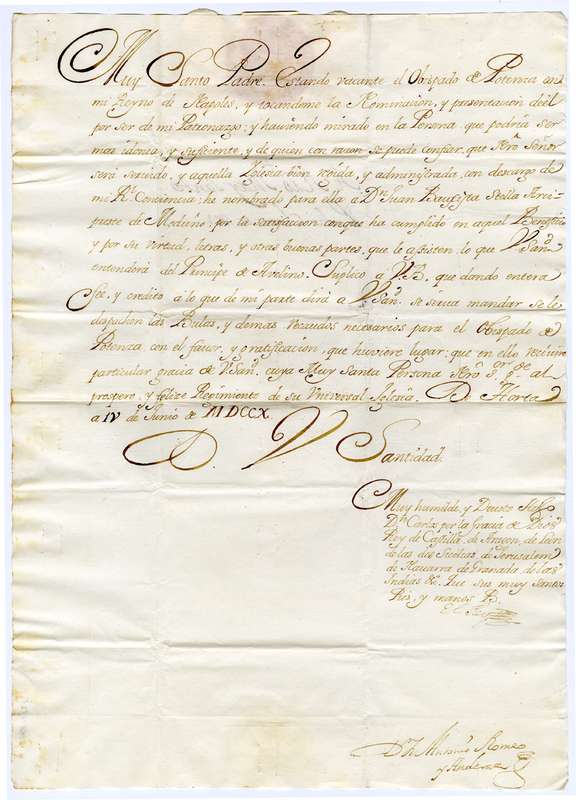 Muy Santo Padre. Estando vacante el Obispado de Potenza en
mi Reyno de Napoles, y tocandome la Nominacion, y presentacion deèl
por ser de mi Patronazgo; y haviendo mirado en la Persona que podria ser
mas idonia, y suficiente, y de quien con razon se puede confiar, que nrõ Señor
será servido, y aquella Iglesia bien regida, y administrada, con descargo de
mi Rl. Conciencia; he nombrado para ella à Dn. Juan Bautista Stella Arci-
preste de Meduño por la satisfacion conque ha cumplido en aquel Beneficio
y por su virtud, letras, y otras buenas partes, que le assisten. lo que V. Sand.
entenderá del Principe de Avelino. Suplico a V.B. que dando entera
Fee, y credito a lo que de mi parte dirà a V. San. se sirva mandar se le
despachen las Bulas, y demas recaudos necesarios para el Obispado de
Potenza con el favor, y gratificacion, que huviere lugar; que en ello reciviré
particular gracia de V. San. cuya Muy Santa Persona nrõ Sr. gde. al
prospero, y felize Regimiento de su Universal Iglesia. De Horta
a IV de Junio de MDCCX.
D. V. Santidad.
Muy humilde, y Devoto Hijo
Dn. Carlos por la Gracia de Dios
Rey de Castilla, de Aragon, de Leon
de las dos Sicilias, de Jerusalem
de Navarra de Granada, de las
Indias &c. que sus muy Santos
Pies, y manos B.
El Rey
Dn. Antonio Romeo
y Anderaz